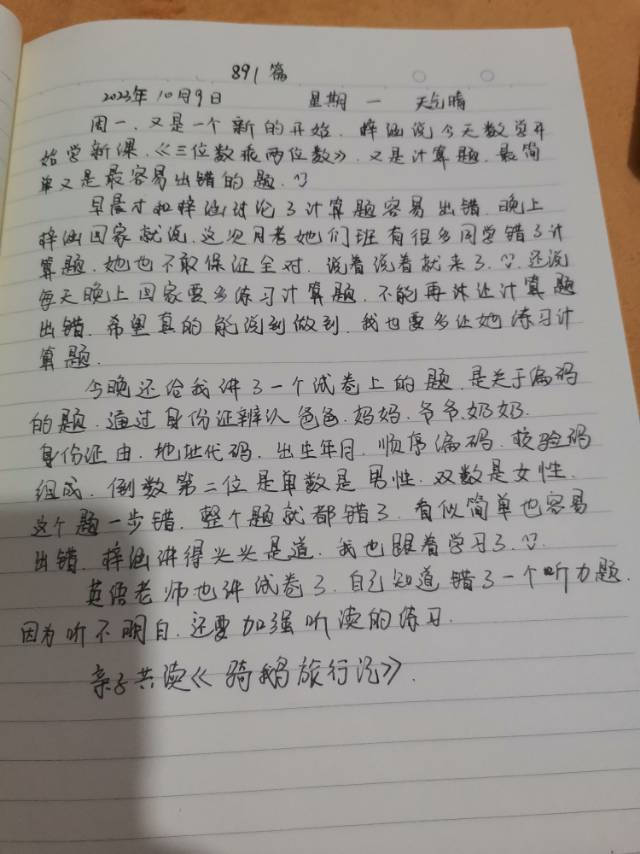 891篇
2023年10月9日 星期一 天气晴
周一,又是一个新的开始,梓涵说今天数学开
始学新课,《三位数乘两位数》,又是计算题,最简
单又是最容易出错的题,
早晨才和梓涵讨论了计算题容易出错,晚上
梓涵回家就说,这次月考她们班有很多同学错了计
算题,她也不敢保证全对,说着说着就来了,还说
每天晚上回家要多练习计算题,不能再让计算题
出错,希望真的能说到做到,我也要多让她练习计
算题.
今晚还给我讲了一个试卷上的题,是关于编码
的题,通过身份证辨认爸爸.妈妈.爷爷.奶奶.
身份证由,地址代码,出生年月,顺序编码,校验码
组成,倒数第二位是单数是男性,双数是女性,
这个题一步错,整个题就都错了,看似简单也容易
出错,梓涵讲得头头是道,我也跟着学习了,
英语老师也讲试卷了,自己知道错了一个听力题,
因为听不明白,还要加强听读的练习.
亲子共读《骑鹅旅行记》.